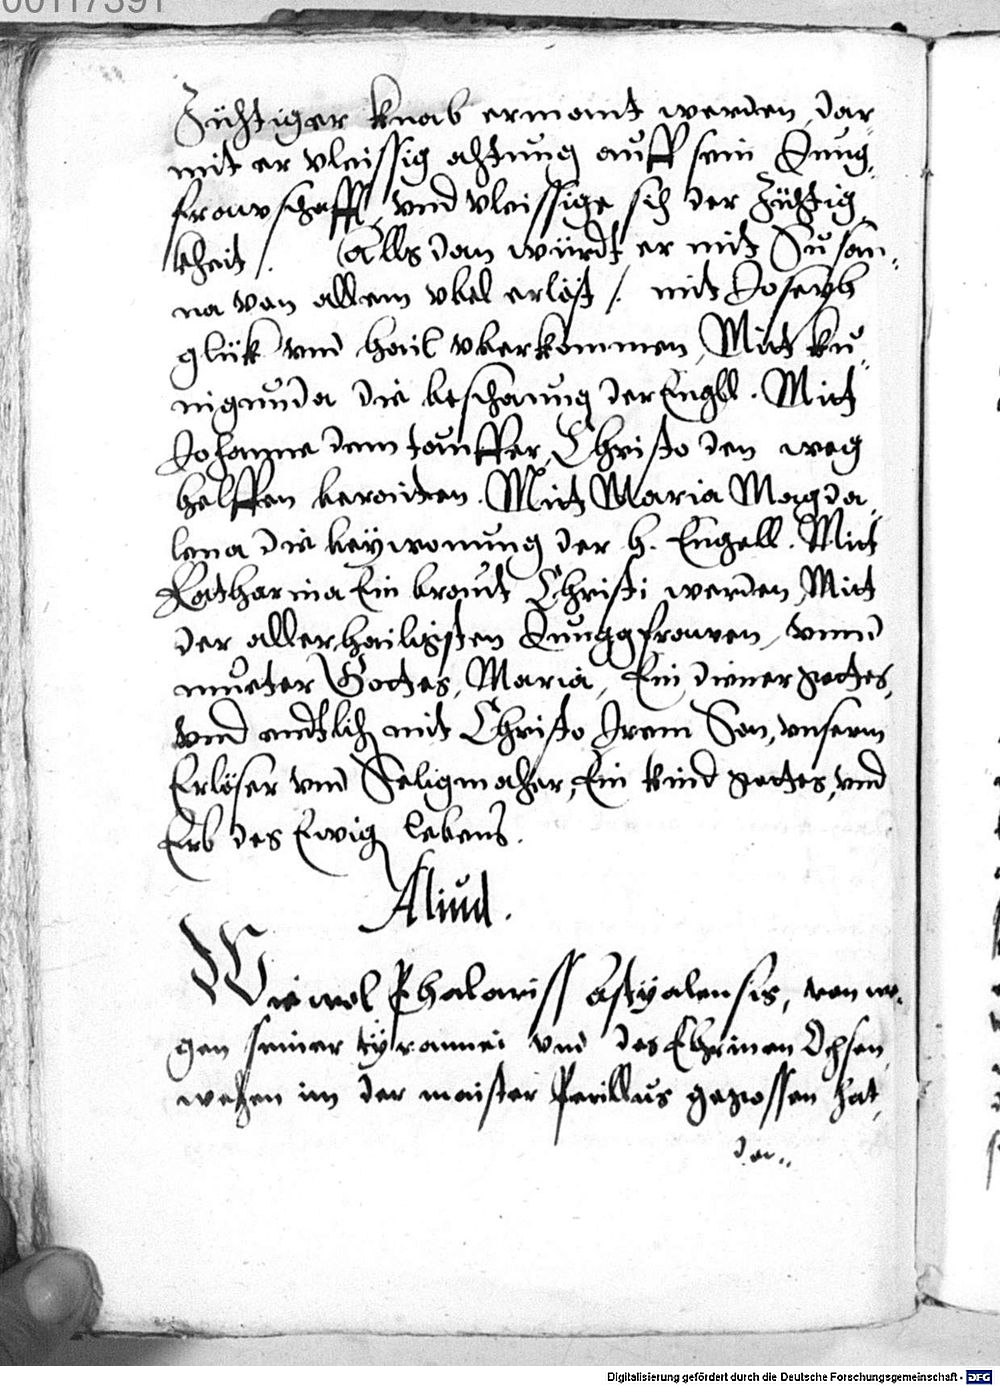 00117391
Züchtiger knab ermant werden, dar„
mit er vleissig achtung auff sein Jung„
frowschafft, vnd vleissige sich der Züchtig„
kheit /. Alls dan würdt er mit Susan„
na von allem vbel erlöst /. mit Joseph
glük vnd hail vberkommen, Mitt ku„
nigunda die beschauung der Engell. Mitt
Johanne dem tauffer, Christo den weg
helffen beraiten. Mitt Maria Magda„
lena die beywonung der h. Engell. Mitt
Katharina Ein braut Christi werden, Mitt
der allerhailigsten Junggfrowen, vnnd
mueter Gottes, Maria, Ein diener gottes,
vnd endtlich mit Christo Irem Son, vnserm
Erlöser vnd Seligmacher, Ein kind gottes, vnd
Erb des Ewig lebens.
Aliud.
Wiewol Phalariss Astyalensis, von we„
gen seiner tyrannei vnd des Ehrinen Ochsen
wehen im der maister Perillus gegossen hat,
den„
Digitalisierung gefördert durch die Deutsche Forschungsgemeinschaft - DFG